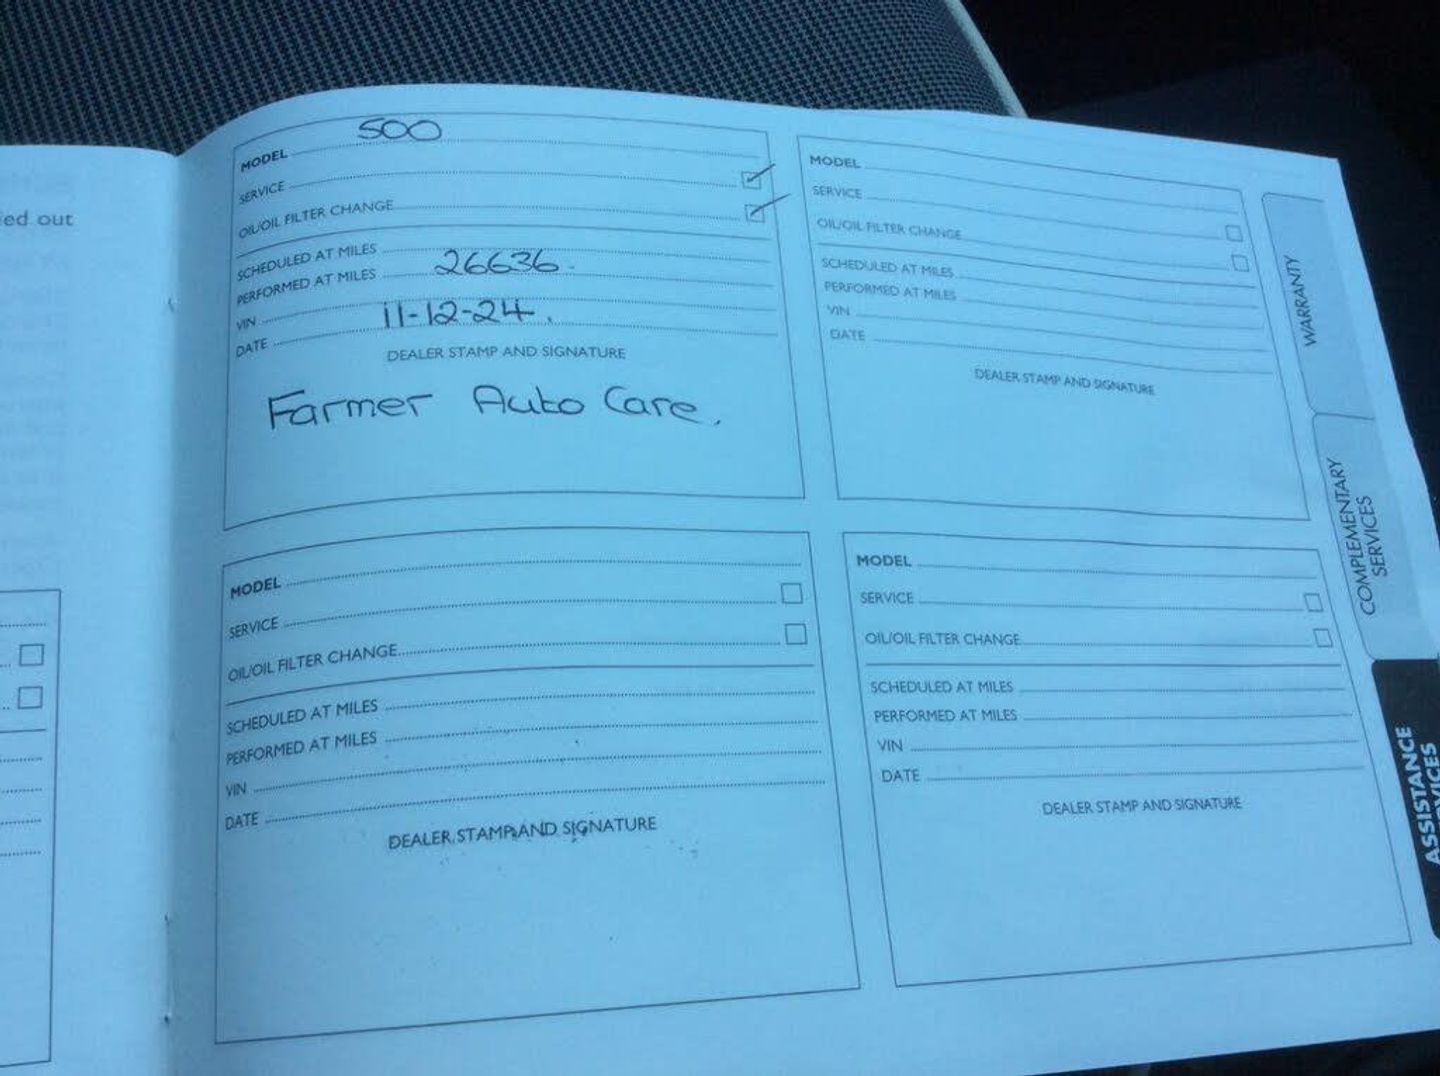 ied out
MODEL 500
SERVICE
OIL/OIL FILTER CHANGE
SCHEDULED AT MILES
PERFORMED AT MILES 26636
VIN
DATE 11-12-24.
DEALER STAMP AND SIGNATURE
Farmer Auto Care.
MODEL
SERVICE
OIL/OIL FILTER CHANGE
SCHEDULED AT MILES
PERFORMED AT MILES
VIN
DATE
DEALER STAMP AND SIGNATURE
MODEL
SERVICE
OIL/OIL FILTER CHANGE
SCHEDULED AT MILES
PERFORMED AT MILES
VIN
DATE
DEALER STAMP AND SIGNATURE
MODEL
SERVICE
OIL/OIL FILTER CHANGE
SCHEDULED AT MILES
PERFORMED AT MILES
VIN
DATE
DEALER STAMP AND SIGNATURE
WARRANTY
COMPLEMENTARY
SERVICES
ASSISTANCE